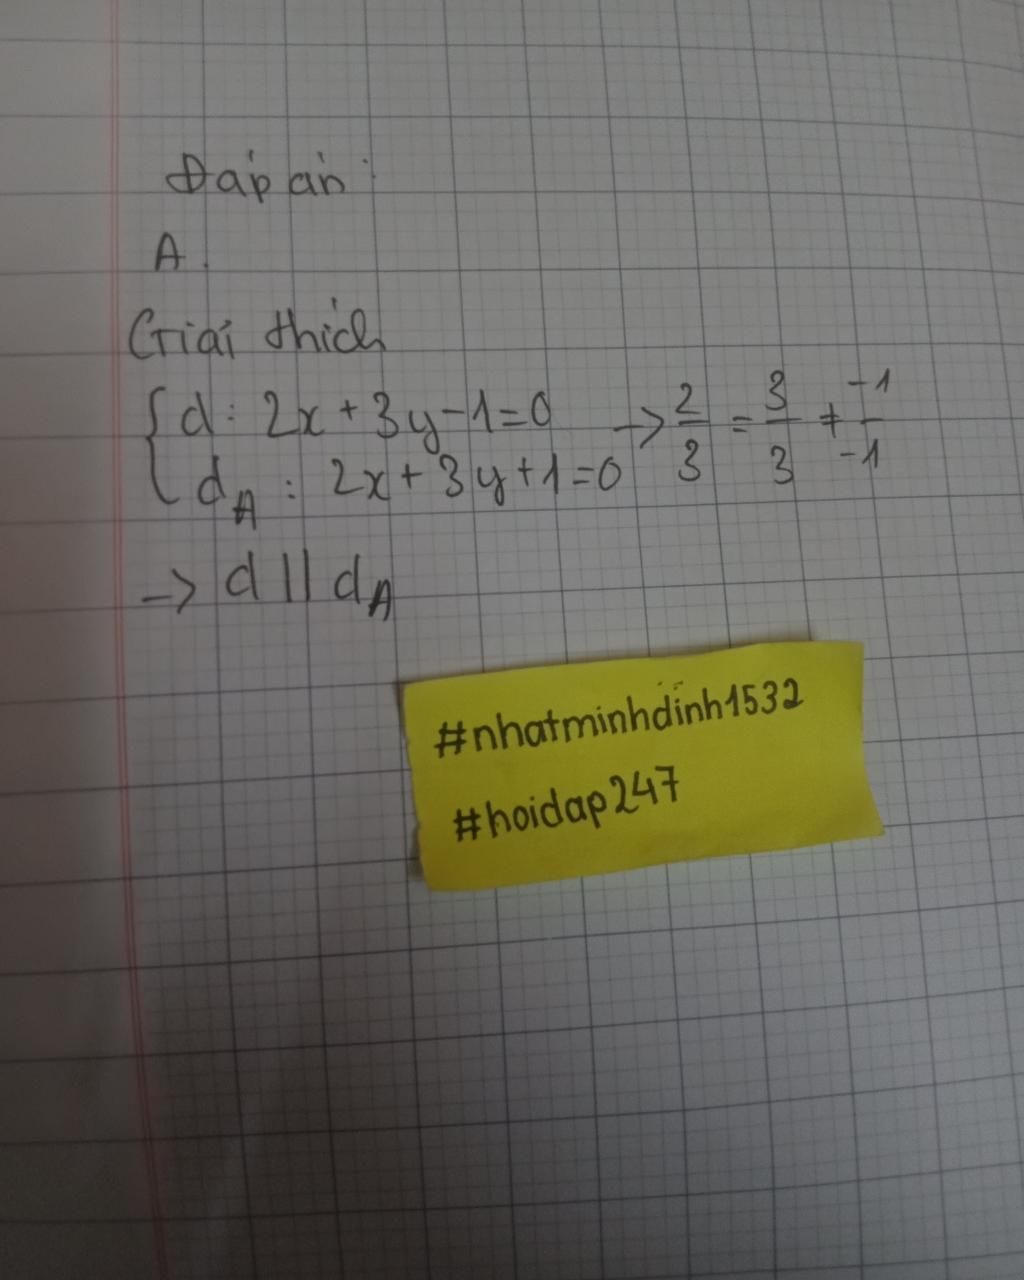 Đáp án:
A.
Giải thích
{ d: 2x+3y-1=0 -> 2/3 = 3/3 ≠ -1/-1
d_A: 2x+3y+1=0
-> d || d_A
#nhatminhdinh1532
#hoidap247